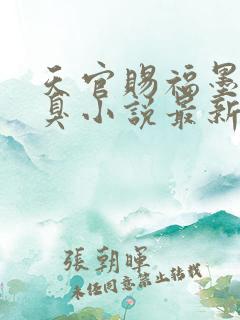 天官賜福墨
真小說最新
張朝暉
未经同意禁止转载